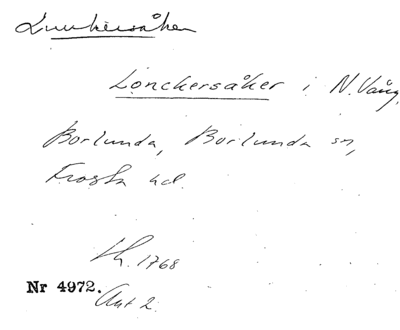 Lunkersåker
Lonckersåker i N. Vång,
Borlunda, Borlunda sn,
Frosta hd.
Lh. 1768
Nr 4972. Akt 2.